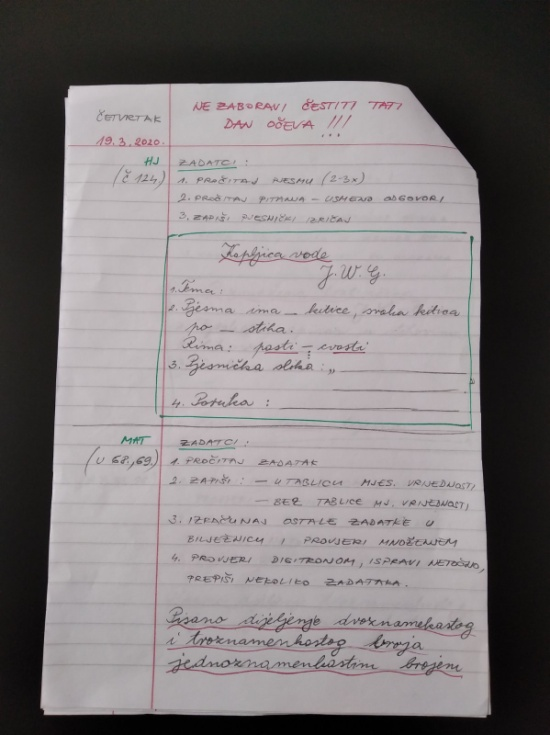 ČETVRTAK
19.3.2020.
NE ZABORAVI ČESTITI TATI
DAN OČEVA !!!
HJ
(Č 124)
ZADATCI :
1. PROČITAJ PJESMU (2-3X)
2. PROČITAJ PITANJA – USMENO ODGOVORI
3. ZAPIŠI PJESNIČKI IZRIČAJ
Kapljica vode
J. W. G.
1. Tema:
2. Pjesma ima _ kitice, svaka kitica
po _ stiha.
Rima: pasti – cvasti
3. Pjesnička slika: „
4. Poruka :
MAT
(U 68., 69.)
ZADATCI :
1. PROČITAJ ZADATAK
2. ZAPIŠI : – U TABLICU MJES. VRIJEDNOSTI
– BEZ TABLICE MJ. VRIJEDNOSTI
3. IZRAČUNAJ OSTALE ZADATKE U
BILJEŽNICU I PROVJERI MNOŽENJEM
4. PROVJERI DIGITRONOM, ISPRAVI NETOČNO,
PREPIŠI NEKOLIKO ZADATAKA.
Pisano dijeljenje dvoznamenkastog
i troznamenkastog broja
jednoznamenkastim brojem